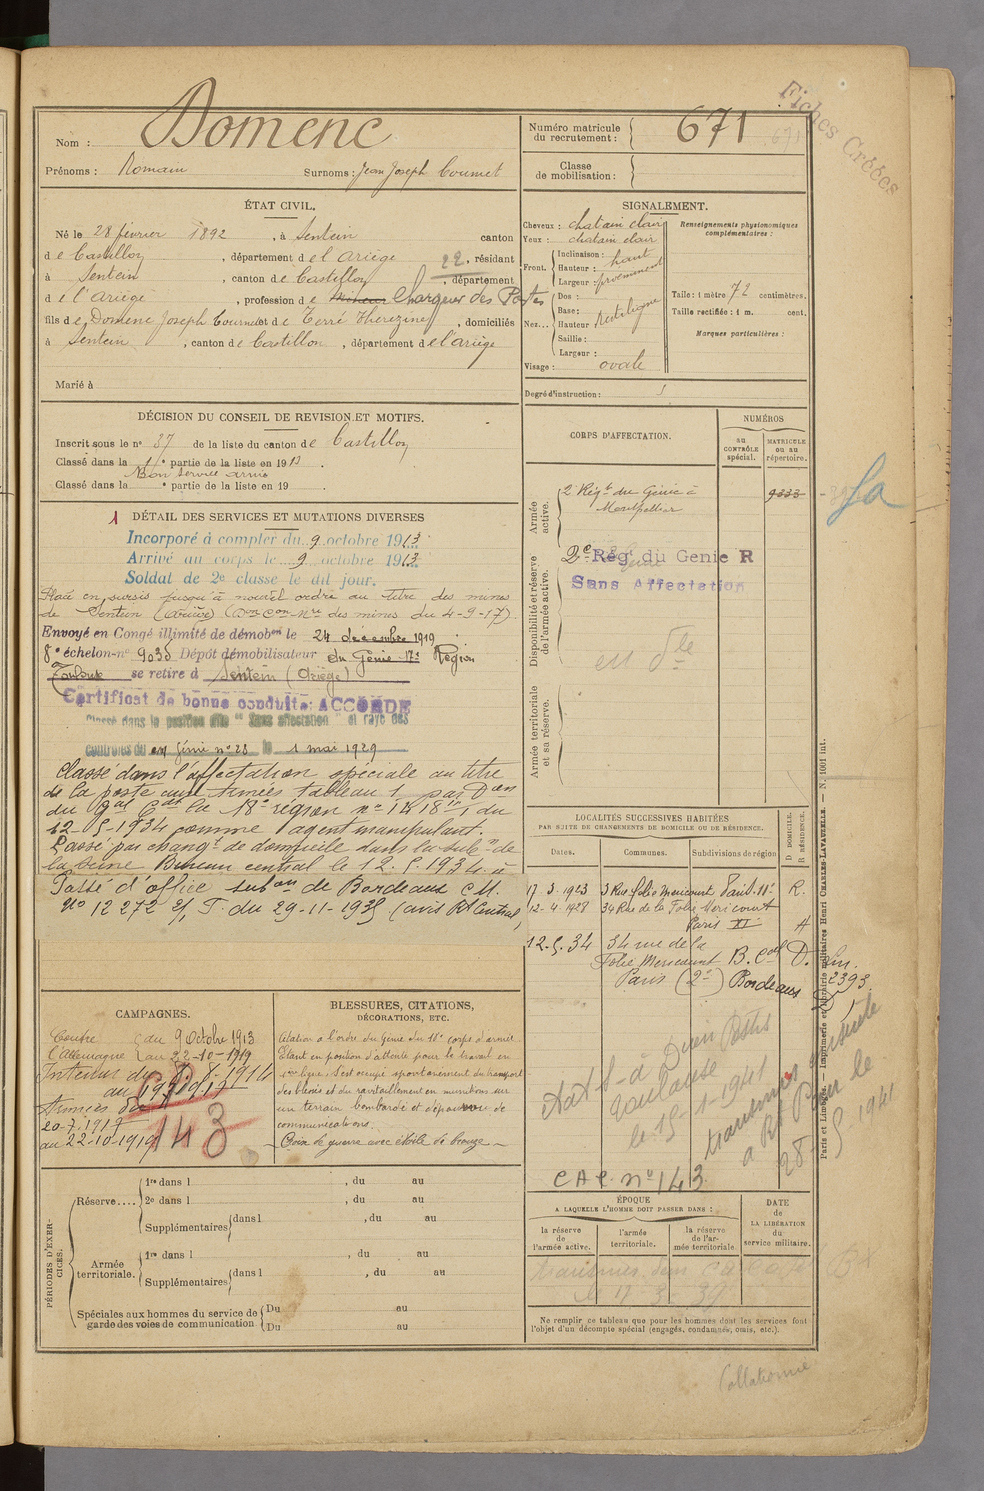 Fiches Créées
Nom : Domenc
Prénoms : Romain Surnoms : Jean Joseph Coumet
Numéro matricule du recrutement : 671
Classe de mobilisation :
ÉTAT CIVIL.
Né le 28 février 1892, à Sentein canton
de Castillon, département de l'Ariège 22, résidant
à Sentein, canton de Castillon, département
de l'Ariège, profession de Mineur Chargeur des Postes
fils de Domenc Joseph Coumet et de Terré Therezine, domiciliés
à Sentein, canton de Castillon, département de l'ariège
Marié à
SIGNALEMENT.
Cheveux : chatain clair
Yeux : chatain clair
Front. Inclinaison :
Hauteur : haut
Largeur : proeminent
Nez... Dos :
Base : Rectiligne
Hauteur
Saillie :
Largeur :
Visage : ovale
Renseignements physionomiques complémentaires :
Taille : 1 mètre 72 centimètres.
Taille rectifiée : 1 m. cent.
Marques particulières :
Degré d'instruction :
DÉCISION DU CONSEIL DE REVISION ET MOTIFS.
Inscrit sous le n° 37 de la liste du canton de Castillon
Classé dans la 1e partie de la liste en 1913.
Bon service armé
Classé dans la e partie de la liste en 19
1 DÉTAIL DES SERVICES ET MUTATIONS DIVERSES
Incorporé à compter du 9 octobre 1913
Arrivé au corps le 9 octobre 1913
Soldat de 2e classe le dit jour.
Placé en sursis jusqu'à nouvel ordre au titre des mines
de Sentein (Ariège) (Don on Nre des mines du 4-9-17)
Envoyé en Congé illimité de démobon le 24 decembre 1919
8e échelon n° 9035 Dépôt démobilisateur du Génie 17e Région
Toulouse se retire à Sentein (Ariège)
Certificat de bonne conduite : ACCORDÉ
Classé dans la position dite "Sans affectation" et rayé des
contrôles du Génie n° 28 le 1 mai 1929
Classé dans l'affectation spéciale au titre
de la poste aux Armées tableau 1 par Don
du Gal Cdt la 18e région n° 1418 du
12-5-1934 comme agent manipulant.
Passé par changt de domicile dans la subon de
la Seine Bureau central le 12.5.1934
Passé d'office subon de Bordeaux C.M.
No 12272 du 29-11-1935 (avis Rt Central)
CORPS D'AFFECTATION.
NUMÉROS
AU CONTRÔLE spécial.
MATRICULE ou au répertoire.
Armée active.
2e Régt du Génie à Montpellier 9333
Disponibilité et réserve de l'armée active.
2e Rég. du Genie R
Sans Affectation
Armée territoriale et sa réserve.
LOCALITÉS SUCCESSIVES HABITÉES
PAR SUITE DE CHANGEMENTS DE DOMICILE OU DE RÉSIDENCE.
Dates. Communes. Subdivisions de région D DOMICILE. R RÉSIDENCE.
17-3-1923 3 Rue folie Mericourt Paris 11e R.
12-4-1928 34 Rue de la Folie Mericourt
Paris XI
12.5.34 34 rue de la
Folie Mericourt B. Cal D.
Paris (2e) Bordeaux
2393
CAMPAGNES.
Contre l'Allemagne du 9 Octobre 1913
au 22-10-1919
Interieur du
au
Armées du
20-7-1917
au 22-10-1919
143
BLESSURES, CITATIONS,
DÉCORATIONS, ETC.
Citation à l'ordre du génie du 11e corps d'armée
Etant en position d'attente pour le travail en
1ère ligne s'est occupé spontanément du transport
des blessés et du ravitaillement en munitions sur
un terrain bombardé et dépourvu de
communications.
Croix de guerre avec étoile de bronze
Toulouse
le 15-1-1941
28-5 1941
C A P. No 143
PÉRIODES D'EXERCICES.
Réserve.... 1re dans l , du au
2e dans l , du au
Supplémentaires dans l , du au
Armée territoriale. 1re dans l , du au
Supplémentaires dans l , du au
Spéciales aux hommes du service de garde des voies de communication Du au
Du au
ÉPOQUE
A LAQUELLE L'HOMME DOIT PASSER DANS :
la réserve de l'armée active.
l'armée territoriale.
la réserve de l'armée territoriale.
DATE de LA LIBÉRATION du service militaire.
Ne remplir ce tableau que pour les hommes dont les services font
l'objet d'un décompte spécial (engagés, condamnés, omis, etc.).
Paris et Limoges. — Imprimerie et librairie militaires Henri CHARLES-LAVAUZELLE. — N. 1001 int.
Collationné